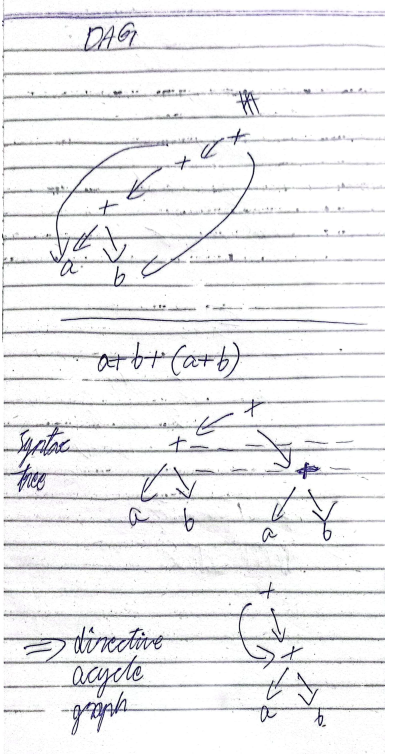 DAG
+
+
+
a b
a+b+(a+b)
+
Syntax + +
tree
a b a b
+
⇒ directive +
acycle
graph a b